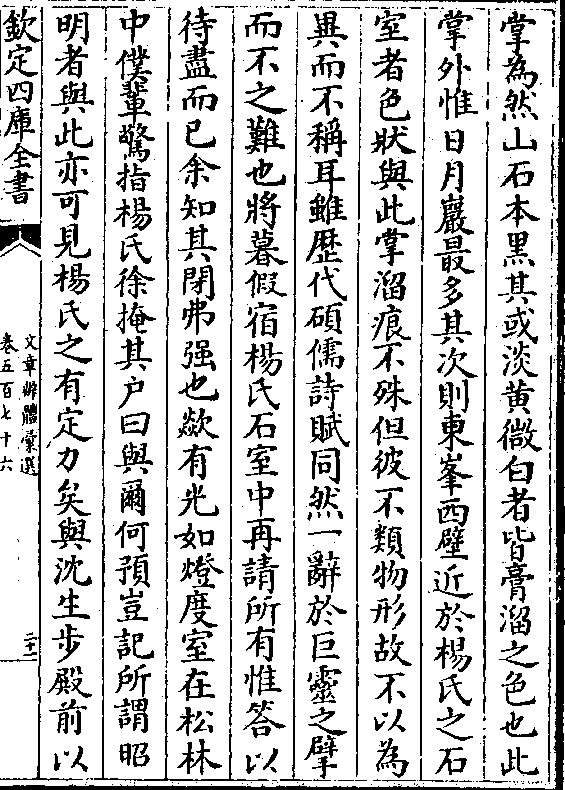 掌為然山石本黑其或淡黄微白者皆膏溜之色也此
掌外惟日月巖最多其次則東峯西壁近於楊氏之石
室者色狀與此掌溜痕不殊但彼不類物形故不以為
異而不稱耳雖歴代碩儒詩賦同然一辭於巨靈之擘
而不之難也將暮假宿楊氏石室中再請所有惟答以
待盡而已余知其閉弗强也歘有光如燈度室在松林
中僕輩驚指楊氏徐掩其户曰與爾何預豈記所謂昭
明者與此亦可見楊氏之有定力矣與沈生步殿前以
欽定四庫全書
文章辨體彚選
卷五百七十六
二十一